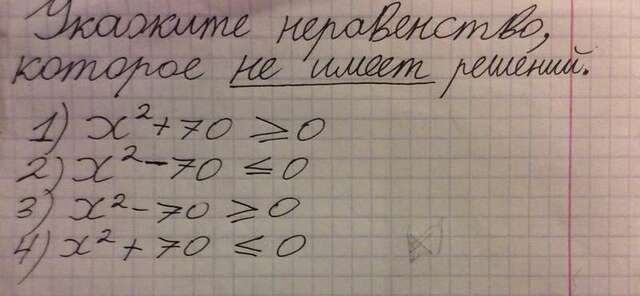 Укажите неравенство,
которое не имеет решений.
1) x²+70 ≥ 0
2) x²-70 ≤ 0
3) x²-70 ≥ 0
4) x²+70 ≤ 0